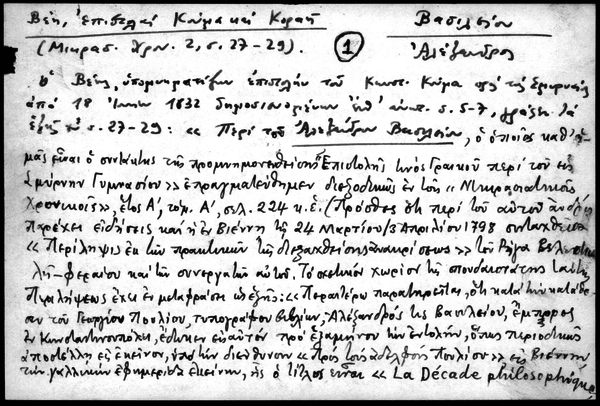 Βέη, Ἐπιστολαὶ Κούμα καὶ Κοραῆ Βασιλείου
(Μικρασ. Χρον. 2, σ. 27-29). 1 Ἀλέξανδρος
ὁ Βέης, ὑπομνηματίζων ἐπιστολὴν τοῦ Κωνστ. Κούμα
ἀπὸ 18 1832 σ. 5-7, γράφει τὰ
ἑξῆς σ. 27-29: « Περὶ τοῦ Ἀλεξάνδρου Βασιλείου, ὁ ὁποῖος καθ' ἡ-
μᾶς εἶναι ὁ συντάκτης τῆς προμνημονευθείσης "Ἐπιστολῆς ἑνὸς Γραικοῦ περὶ τοῦ εἰς
Σμύρνην Γυμνασίου» ἐπραγματεύθημεν διεξοδικῶς ἐν τοῖς «Μικρασιατικοῖς
Χρονικοῖς», ἔτος Α', τόμ. Α', σελ. 224 κ. ἑ. (Πρόσθες ὅτι περὶ τοῦ αὐτοῦ ἀνδρὸς
παρέχει εἰδήσεις καὶ ἡ ἐν Βιέννῃ τῇ 24 Μαρτίου/3 Ἀπριλίου 1798 συνταχθεῖσα
« Περίληψις ἐκ τῶν πρακτικῶν τῆς διεξαχθείσης ἀνακρίσεως» τοῦ Ρήγα Βελεστιν-
λῆ-Φεραίου καὶ τῶν συνεργατῶν αὐτοῦ. Τὸ σχετικὸν χωρίον τῆς σπουδαιοτάτης ταύτης
Περιλήψεως ἔχει ἐν μεταφράσει ὡς ἑξῆς: « Περαιτέρω παρατηρεῖται, ὅτι κατὰ τὴν κατάθε-
σιν τοῦ Γεωργίου Πουλίου, τυπογράφου βιβλίων, Ἀλέξανδρός τις Βασιλείου, ἔμπορος
ἐν Κωνσταντινουπόλει, ἔδωκεν εἰς αὐτὸν πρὸ ἑξαμήνου τὴν ἐντολήν, ὅπως περιοδικῶς
ἀποστέλλῃ εἰς ἐκεῖνον, ὑπὸ τὴν διεύθυνσιν «Πρὸς τοὺς ἀδελφοὺς Πουλίου» εἰς Βιέννην
τὴν γαλλικὴν ἐφημερίδα ἐκείνην, ἧς ὁ τίτλος εἶναι « La Décade philosophique,